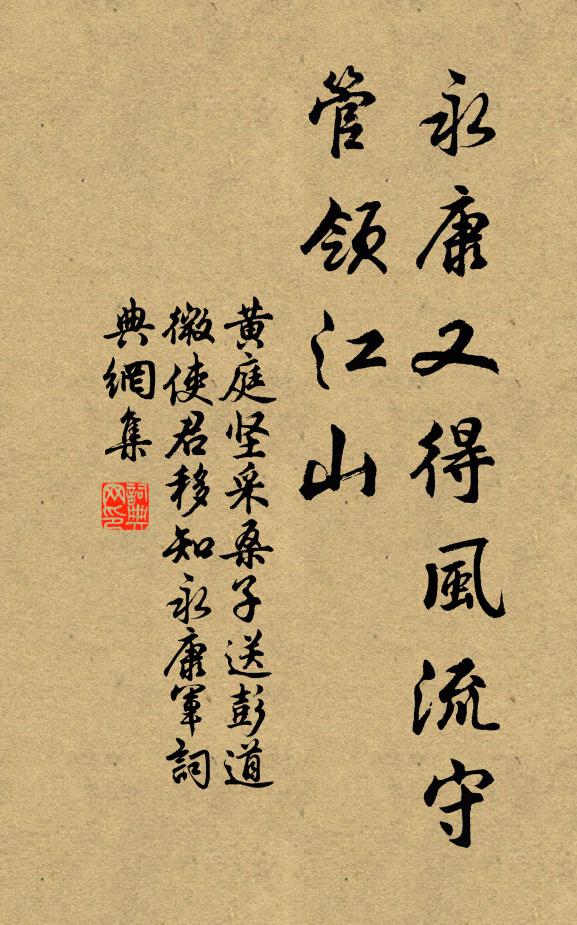 永康又得風流守
管領江山
黄庭坚采桑子送彭道
微使君移知永康軍詞
典網集
詞典
网印